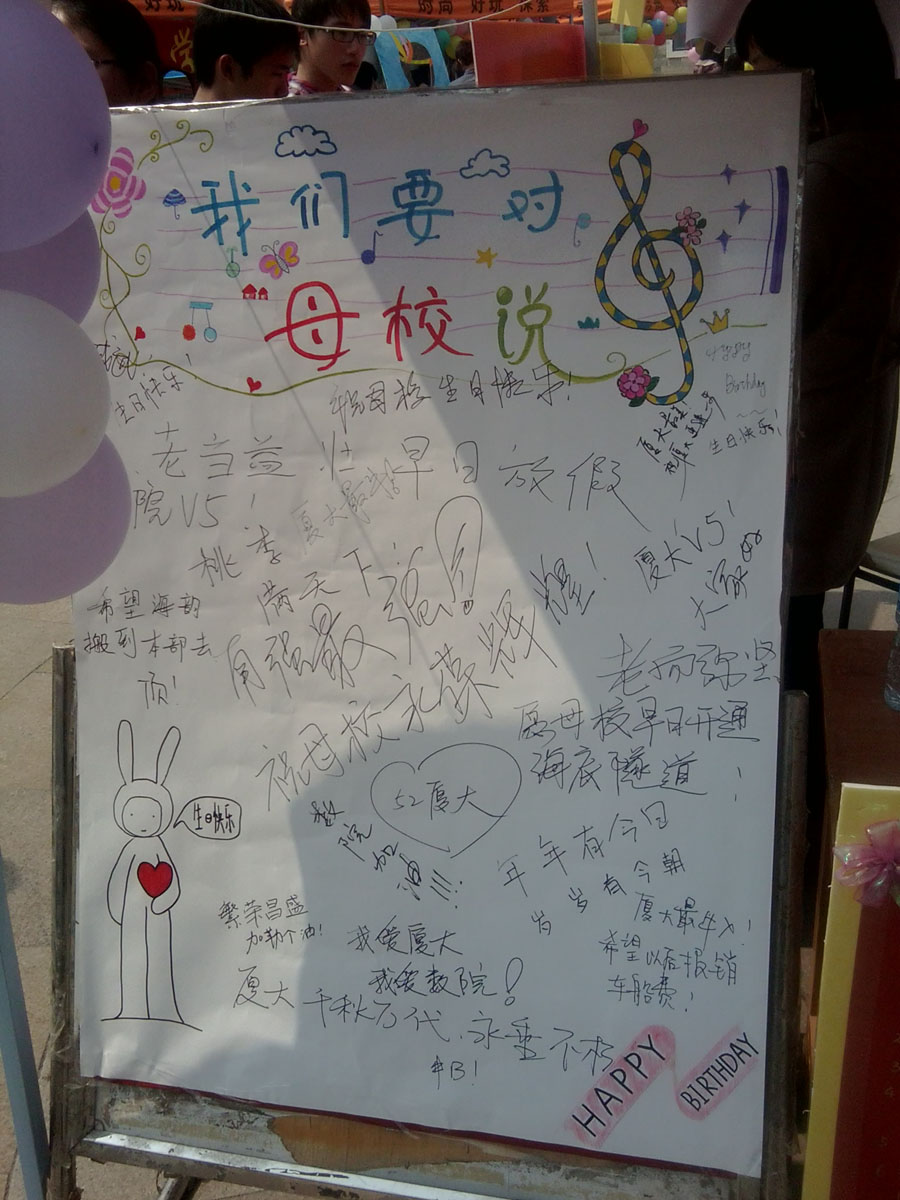 我们要对
母校说
生日快乐!
祝母校生日快乐!
Happy
Birthday
~~
生日快乐!
老当益壮
早日放假
院V5!
桃李
满天下
厦大V5!
希望海韵
搬到本部去
顶!
自强最强!
祝母校永葆辉煌!
老而弥坚
愿母校早日开通
海底隧道!
52厦大
数院加油!!!
生日快乐
年年有今日
岁岁有今朝
繁荣昌盛
加勒个油!
厦大最牛!
希望以后报销
车船费!
我爱厦大
我爱数院!
厦大千秋万代,永垂不朽
HAPPY
BIRTHDAY